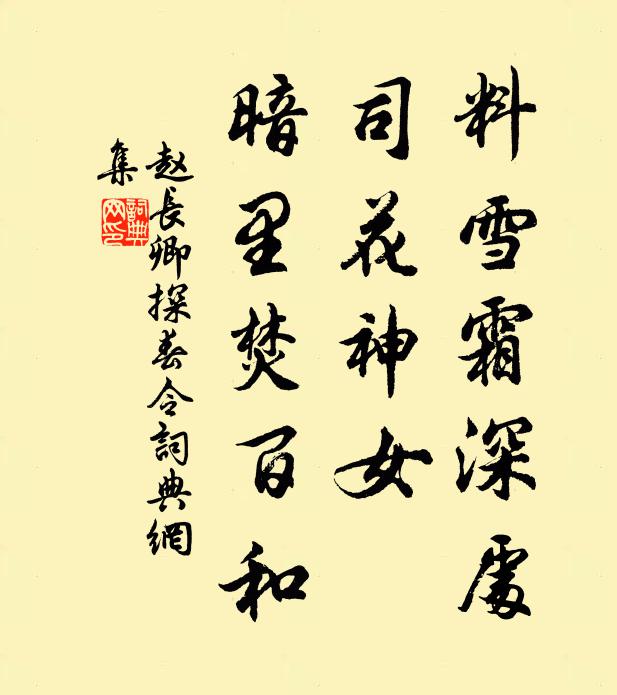 料雪霜深處
司花神女
暗里焚百和
赵長卿探春令詞典網
集
詞典
网印